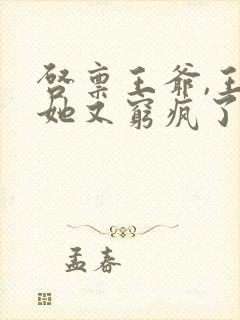 启禀王爷,王
她又窮疯了
孟春